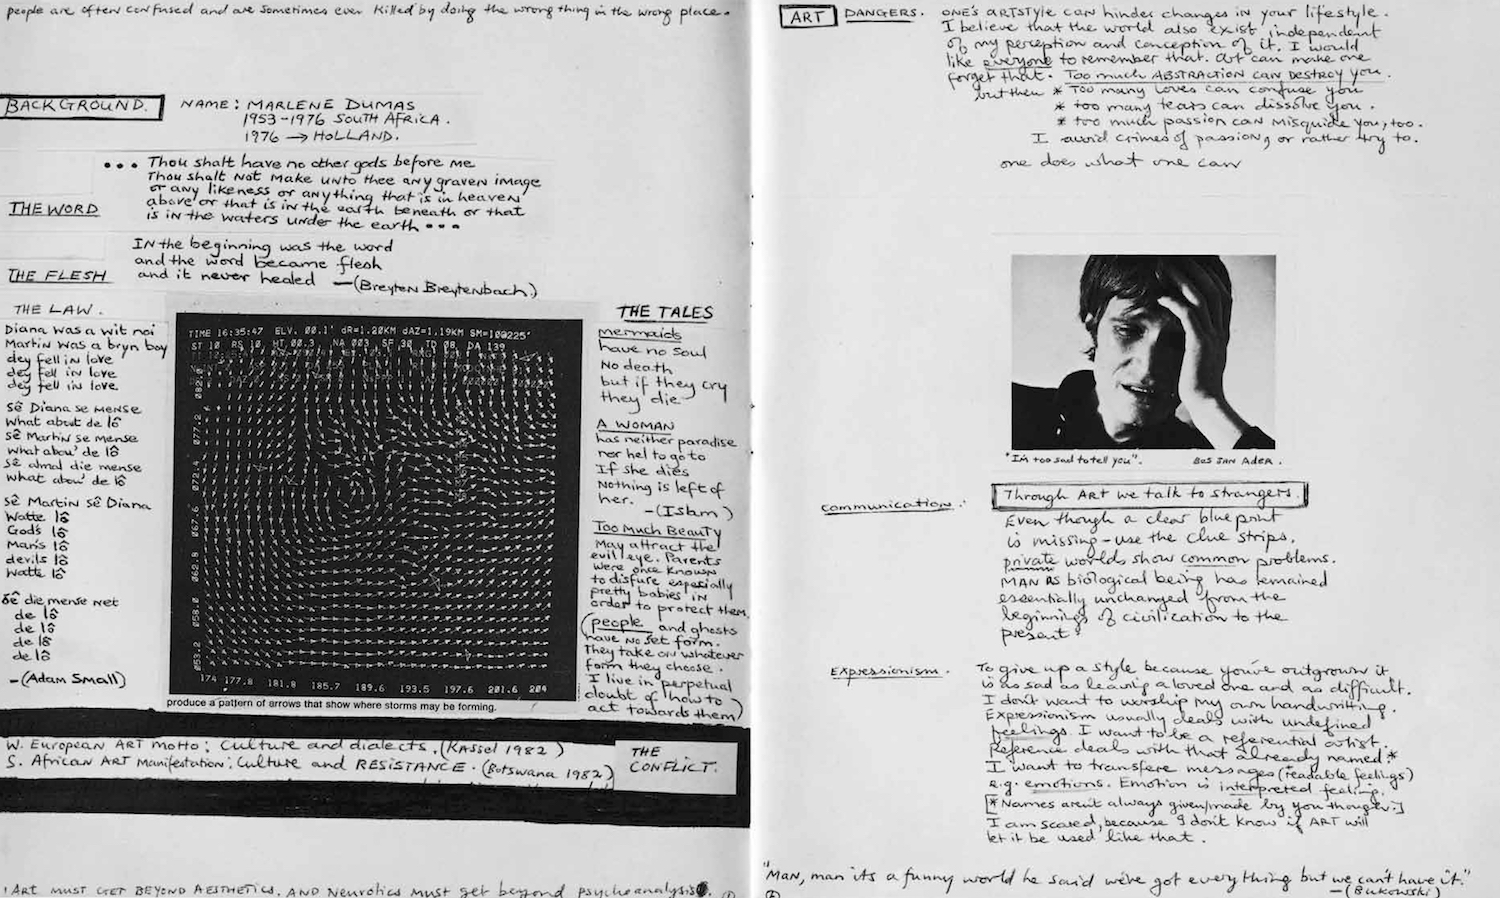 people are often confused and are sometimes even killed by doing the wrong thing in the wrong place.
BACKGROUND.
NAME: MARLENE DUMAS
1953-1976 SOUTH AFRICA.
1976 → HOLLAND.
••• Thou shalt have no other gods before me
Thou shalt not make unto thee any graven image
or any likeness or anything that is in heaven
above or that is in the earth beneath or that
is in the waters under the earth •••
THE WORD
In the beginning was the word
and the word became flesh
and it never healed —(Breyten Breytenbach.)
THE FLESH
THE LAW.
Diana was a wit noi
Martin was a bryn boy
dey fell in love
dey fell in love
dey fell in love
sê Diana se mense
What about de lô
sê Martin se mense
what abou' de lô
sê almal die mense
what abou' de lô
sê Martin sê Diana
Watte lô
God's lô
Man's lô
devils lô
Watte lô
sê die mense net
de lô
de lô
de lô
de lô
—(Adam Small)
TIME 16:35:47 ELV. 00.1' dR=1.20KM dAZ=1.19KM SM=109225'
ST 10 RS 10 HT 00.3 NA 003 SF 30 TD 08 DA 139
077.2
072.4
067.6
062.8
058.0
053.2
174 177.8 181.8 185.7 189.6 193.5 197.6 201.6 204
produce a pattern of arrows that show where storms may be forming.
THE TALES
mermaids
have no soul
No death
but if they cry
they die
A WOMAN
has neither paradise
nor hel to go to
If she dies
Nothing is left of
her.
—(Islam)
TOO MUCH BEAUTY
May attract the
evil eye. Parents
were once known
to disfure especially
pretty babies in
order to protect them.
(people and ghosts
have no set form.
They take on whatever
form they choose.
I live in perpetual
doubt of how to
act towards them)
W. European ART motto: Culture and dialects. (Kassel 1982)
S. African ART Manifestation: Culture and RESISTANCE. (Botswana 1982)
THE
CONFLICT.
ART MUST GET BEYOND AESTHETICS. AND Neurotics must get beyond psychoanalysis.
ART DANGERS.
ONE'S ARTSTYLE can hinder changes in your lifestyle.
I believe that the world also exist independent
of my perception and conception of it. I would
like everyone to remember that. Art can make one
forget that. Too much ABSTRACTION can DESTROY you.
but then * Too many Loves can confuse you
* too many tears can dissolve you.
* too much passion can misguide you, too.
I avoid crimes of passion, or rather try to.
one does what one can
"I'm too sad to tell you". BAS JAN ADER.
Communication:
Through ART we talk to strangers.
Even though a clear blueprint
is missing - use the clue strips.
private worlds show common problems.
MAN as biological being has remained
essentially unchanged from the
beginnings of civilication to the
present.
Expressionism.
To give up a style because you've outgrown it
is as sad as leaving a loved one and as difficult.
I don't want to worship my own handwritting.
Expressionism usually deals with undefined
feelings. I want to be a referential artist.
Reference deals with that already named *
I want to transfere messages (readable feelings)
e.g. emotions. Emotion is interpreted feeling.
[* Names aren't always given/made by you though.]
I am scared, because I don't know if ART will
let it be used like that.
"Man, man its a funny world he said we've got everything but we can't have it."
—(Bukowski)